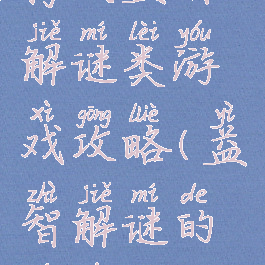 jiě mí lèi yóu
解谜类游
xì gōng lüè yì
戏攻略(益
zhì jiě mí de
智解谜的